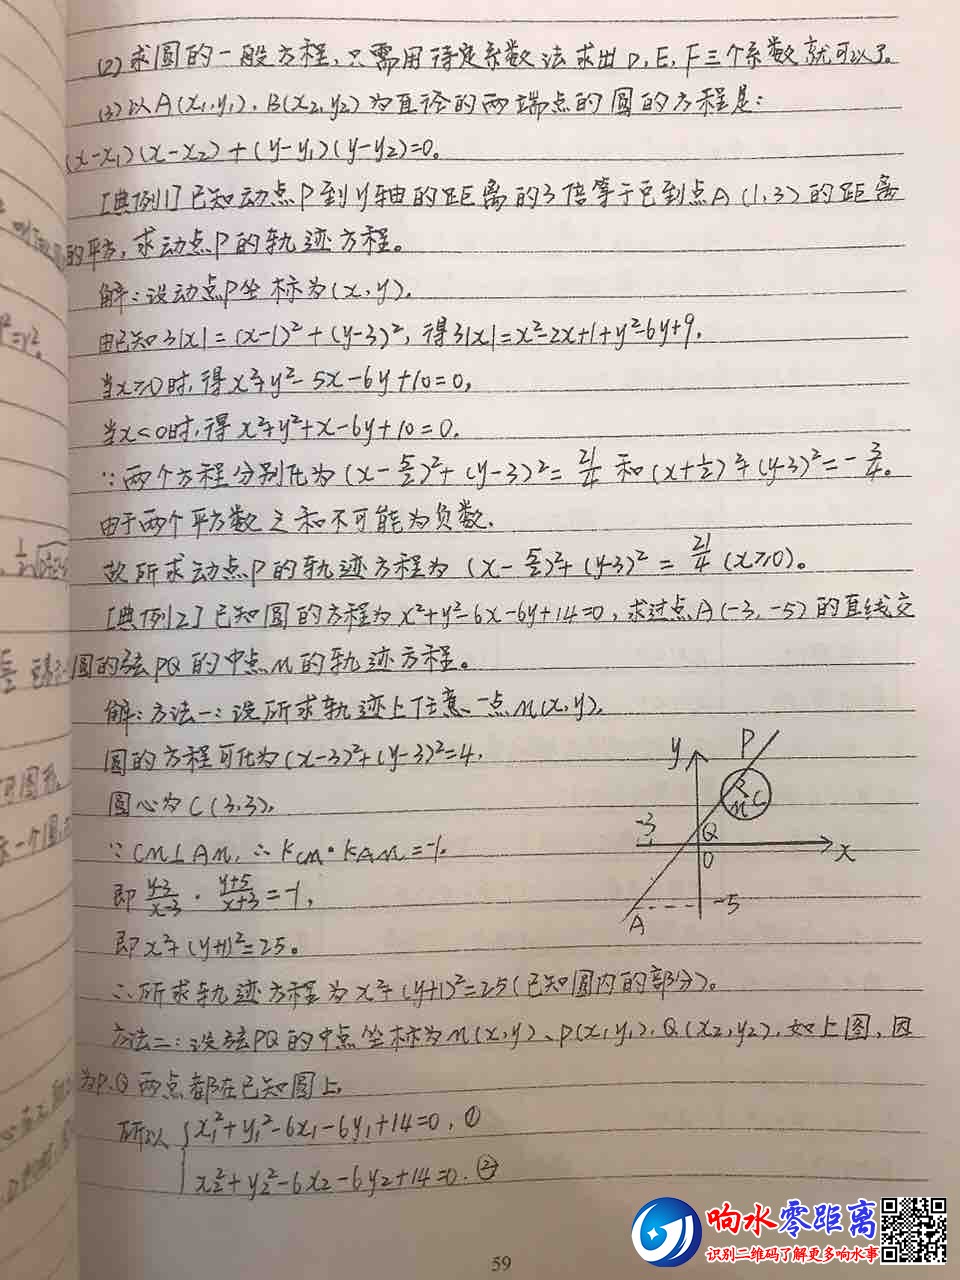 (2)求圆的一般方程,只需用待定系数法求出D,E,F三个系数就可以了。
(3)以A(x₁,y₁),B(x₂,y₂)为直径的两端点的圆的方程是:
(x-x₁)(x-x₂)+(y-y₁)(y-y₂)=0。
[典例1]已知动点P到y轴的距离的3倍等于它到点A(1,3)的距离
的平方,求动点P的轨迹方程。
解:设动点P坐标为(x,y).
由已知3|x|=(x-1)²+(y-3)²,得3|x|=x²-2x+1+y²-6y+9.
当x≥0时,得x²+y²-5x-6y+10=0,
当x<0时,得x²+y²+x-6y+10=0.
∵两个方程分别化为(x-5/2)²+(y-3)²=21/4和(x+1/2)²+(y-3)²=-3/4。
由于两个平方数之和不可能为负数.
故所求动点P的轨迹方程为(x-5/2)²+(y-3)²=21/4(x≥0)。
[典例2]已知圆的方程为x²+y²-6x-6y+14=0,求过点A(-3,-5)的直线交
圆的弦PQ的中点M的轨迹方程。
解:方法一:设所求轨迹上任意一点M(x,y),
圆的方程可化为(x-3)²+(y-3)²=4.
圆心为C(3,3),
∵CM⊥AM,∴kCM·kAM=-1.
即(y-3)/(x-3)·(y+5)/(x+3)=-1,
即x²+(y+1)²=25。
∴所求轨迹方程为x²+(y+1)²=25(已知圆内的部分)。
方法二:设弦PQ的中点坐标为M(x,y)、P(x₁,y₁),Q(x₂,y₂),如上图,因
为P、Q两点都在已知圆上,
所以{x₁²+y₁²-6x₁-6y₁+14=0,①
x₂²+y₂²-6x₂-6y₂+14=0.②
y
P
M
C
-3
Q
O
x
A
-5
59
响水零距离
识别二维码了解更多响水事